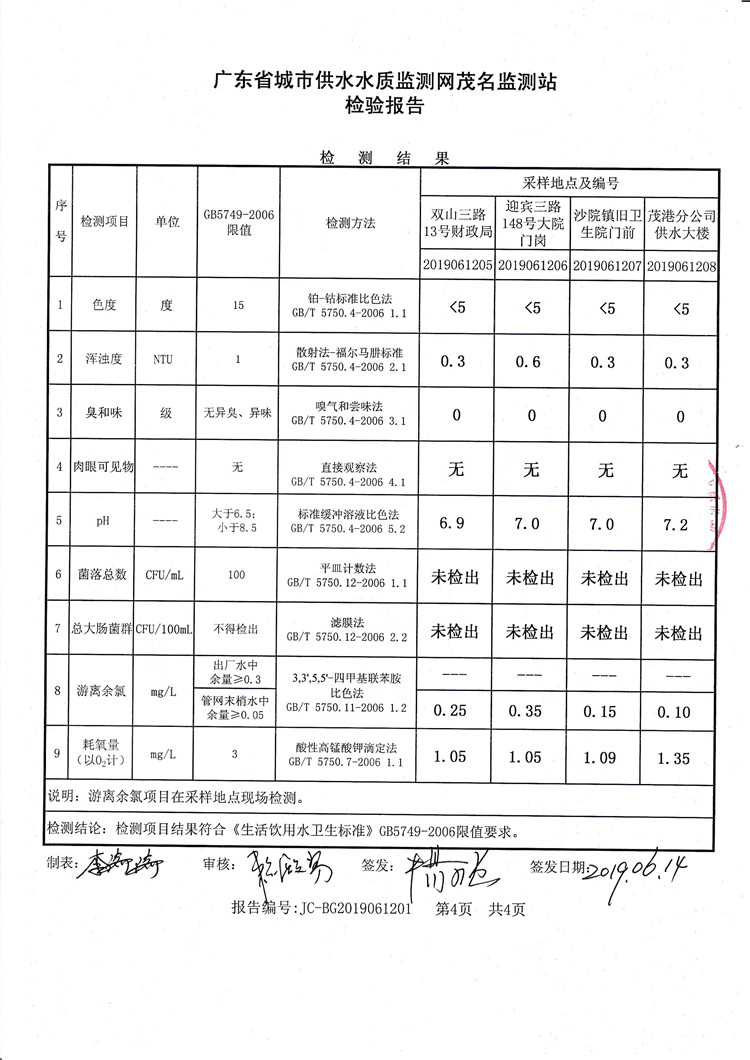 广东省城市供水水质监测网茂名监测站
检验报告
检 测 结 果
序号 检测项目 单位 GB5749-2006限值 检测方法 采样地点及编号
双山三路13号财政局 迎宾三路148号大院门岗 沙院镇旧卫生院门前 茂港分公司供水大楼
2019061205 2019061206 2019061207 2019061208
1 色度 度 15 铂-钴标准比色法 GB/T 5750.4-2006 1.1 <5 <5 <5 <5
2 浑浊度 NTU 1 散射法-福尔马肼标准 GB/T 5750.4-2006 2.1 0.3 0.6 0.3 0.3
3 臭和味 级 无异臭、异味 嗅气和尝味法 GB/T 5750.4-2006 3.1 0 0 0 0
4 肉眼可见物 ---- 无 直接观察法 GB/T 5750.4-2006 4.1 无 无 无 无
5 pH ---- 大于6.5；小于8.5 标准缓冲溶液比色法 GB/T 5750.4-2006 5.2 6.9 7.0 7.0 7.2
6 菌落总数 CFU/mL 100 平皿计数法 GB/T 5750.12-2006 1.1 未检出 未检出 未检出 未检出
7 总大肠菌群 CFU/100mL 不得检出 滤膜法 GB/T 5750.12-2006 2.2 未检出 未检出 未检出 未检出
8 游离余氯 mg/L 出厂水中余量≥0.3 3,3',5,5'-四甲基联苯胺比色法 GB/T 5750.11-2006 1.2 --- --- --- ---
管网末梢水中余量≥0.05 0.25 0.35 0.15 0.10
9 耗氧量（以O₂计） mg/L 3 酸性高锰酸钾滴定法 GB/T 5750.7-2006 1.1 1.05 1.05 1.09 1.35
说明：游离余氯项目在采样地点现场检测。
检测结论：检测项目结果符合《生活饮用水卫生标准》GB5749-2006限值要求。
制表： 审核： 签发： 签发日期：2019.06.14
报告编号：JC-BG2019061201 第4页 共4页